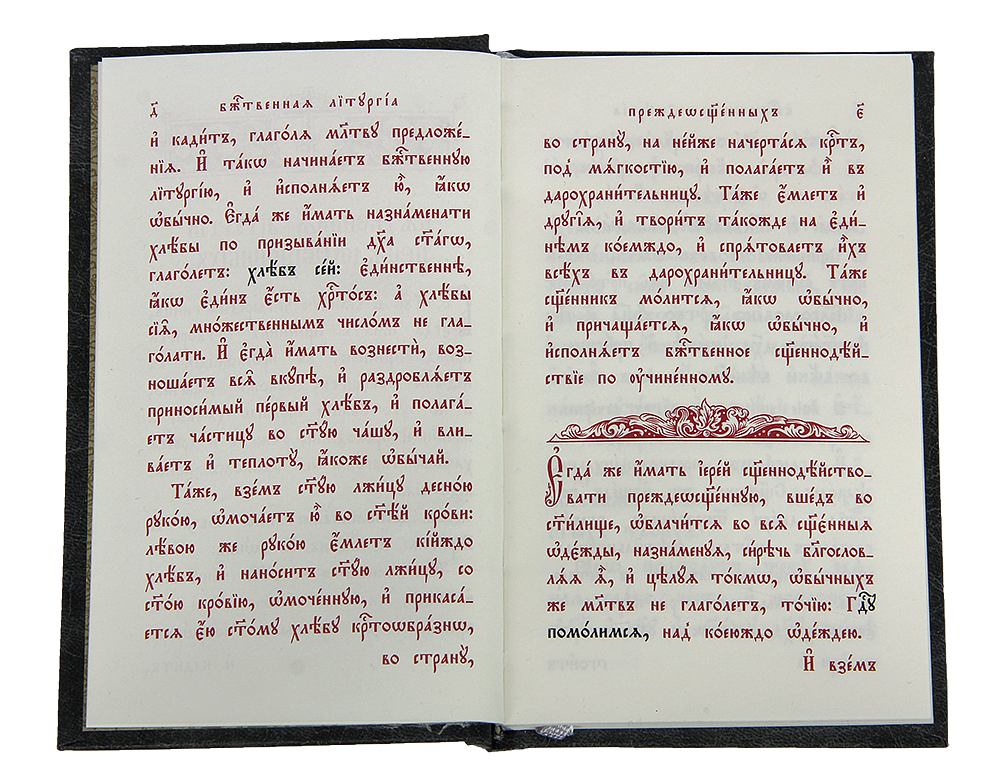 д҃ бж҃твенная лїтꙋргі́а
и҆ кади́тъ, глаго́лѧ мл҃твꙋ предложе́-
нїѧ. И҆ та́кѡ начина́етъ бж҃твеннꙋю
лїтꙋргі́ю, и҆ и҆сполнѧ́етъ ю҆̀, ꙗ҆́кѡ
ѡ҆бы́чно. Е҆гда́ же и҆́мать назна́менати
хлѣ́бы по призыва́нїи дх҃а ст҃а́гѡ,
глаго́летъ: хлѣ́бъ се́й: є҆ди́нственнѣ,
ꙗ҆́кѡ є҆ди́нъ є҆́сть хрⷭ҇то́съ: а҆ хлѣ́бы
сїѧ̑, мно́жественнымъ число́мъ не гла-
го́лати. И҆ є҆гда̀ и҆́мать вознестѝ, воз-
ноша́етъ всѧ̑ вкꙋ́пѣ, и҆ раздроблѧ́етъ
приноси́мый пе́рвый хлѣ́бъ, и҆ полага́-
етъ ча́стицꙋ во ст҃ꙋ́ю ча́шꙋ, и҆ вли-
ва́етъ и҆ теплотꙋ̀, ꙗ҆́коже ѡ҆бы́чай.
Та́же, взе́мъ ст҃ꙋ́ю лжи́цꙋ десно́ю
рꙋко́ю, ѡ҆моча́етъ ю҆̀ во ст҃ѣ́й кро́ви:
лѣ́вою же рꙋко́ю є҆́млетъ кі́йждо
хлѣ́бъ, и҆ нано́ситъ ст҃ꙋ́ю лжи́цꙋ, со
ст҃о́ю кро́вїю, ѡ҆мо́ченнꙋю, и҆ прикаса́-
етсѧ є҆́ю ст҃о́мꙋ хлѣ́бꙋ крⷭ҇тоѡбра́знѡ,
во странꙋ̀,
преждеѡсщ҃е́нныхъ є҃
во странꙋ̀, на не́йже начерта́сѧ крⷭ҇тъ,
под̾ мѧ́гкостїю, и҆ полага́етъ и҆̀ въ
дарохрани́тельницꙋ. Та́же є҆́млетъ и҆
дрꙋгі̑ѧ, и҆ твори́тъ та́кожде на є҆ди́-
нѣмъ кое́мждо, и҆ спрѧ́товаетъ и҆̀хъ
всѣ́хъ въ дарохрани́тельницꙋ. Та́же
сщ҃е́нникъ мо́литсѧ, ꙗ҆́кѡ ѡ҆бы́чно,
и҆ причаща́етсѧ, ꙗ҆́кѡ ѡ҆бы́чно, и҆
и҆сполнѧ́етъ бж҃твенное сщ҃еннодѣ́й-
ствїе по ᲂу҆чине́нномꙋ.
Е҆гда́ же и҆́мать і҆ере́й сщ҃еннодѣ́йство-
вати преждеѡсщ҃е́ннꙋю, вше́дъ во
ст҃и́лище, ѡ҆блачи́тсѧ во всѧ̑ сщ҃є́нныѧ
ѡ҆де́жды, назна́менꙋѧ, си́рѣчь бл҃гослов-
лѧ́ѧ ѧ҆̀, и҆ цѣлꙋ́ѧ то́кмѡ, ѡ҆бы́чныхъ
же мл҃твъ не глаго́летъ, то́чїю: Гдⷭ҇ꙋ
помо́лимсѧ, над̾ кое́юждо ѡ҆де́ждею.
И҆ взе́мъ